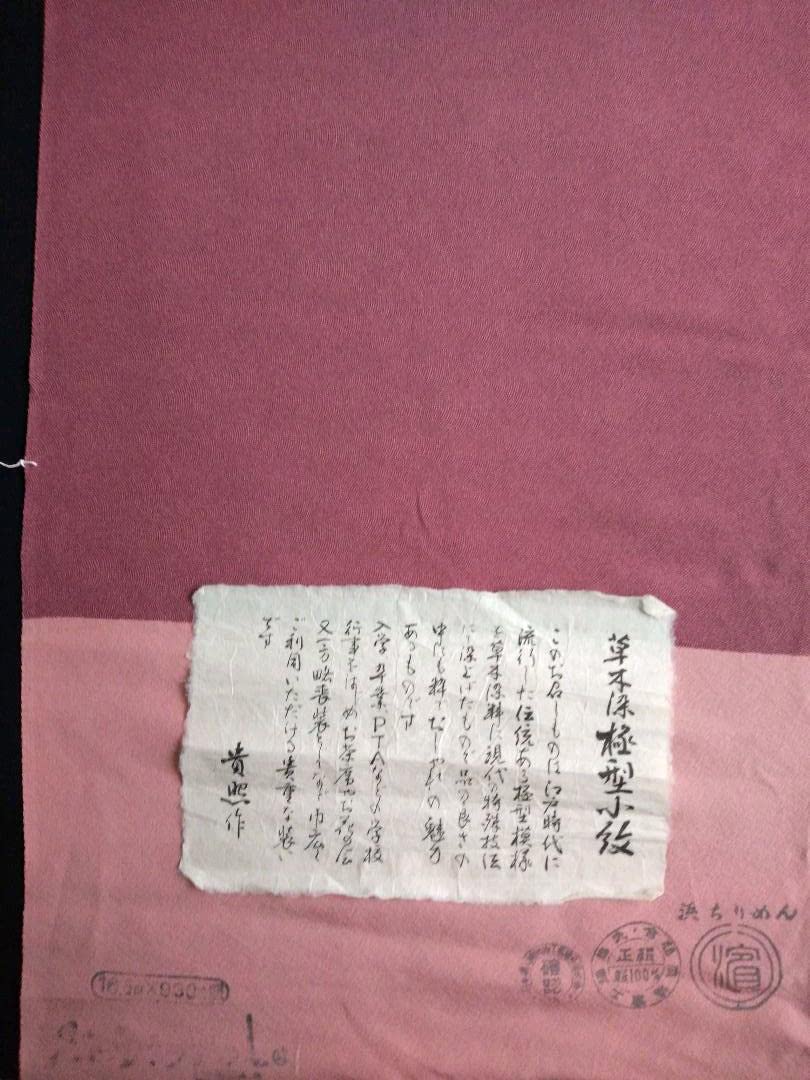 草木染極型小紋
このお召しものは江戸時代に
流行した伝統ある極型模様
を草木染料に現代の特殊技法
にて染上げたもので品の良さの
中にも粋でおしゃれの魅力
あるものです
入学 卒業 PTAなどの学校
行事をはじめお茶席やお花の会
又一方略喪装としてなど巾広く
ご利用いただける貴重な装い
です
貴照作
浜ちりめん
濱
正絹
絹100%